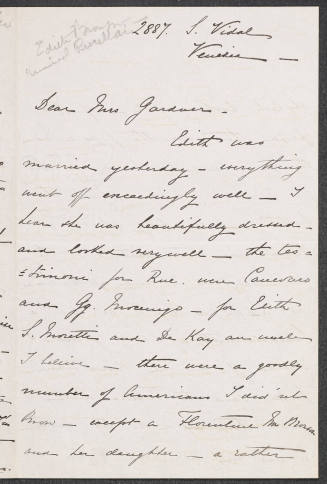 Edith
2887. S. Vidal
Venezia —
Dear Mrs Gardner —
Edith was
married yesterday — everything
went off exceedingly well — I
hear she was beautifully dressed —
and looked very well — the tes=
=timoni for Ruc. were Canevaro
and Gg. Mocenigo — for Edith
S. Moretti and De Kay an uncle
I believe — there were a goodly
number of Americans I did'nt
know — except a Florentine Mrs
and her daughter — a rather